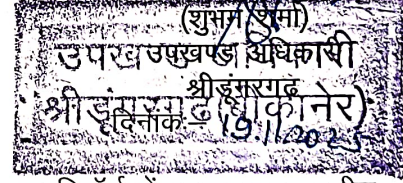 (शुभम शर्मा)
उपखण्ड अधिकारी
उपखण्ड अधिकारी
श्रीडूंगरगढ़
श्रीडूंगरगढ़ (बीकानेर)
दिनांक - 19/11/2025